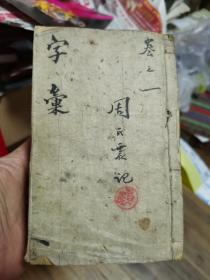 卷之一
周氏震记
字彙